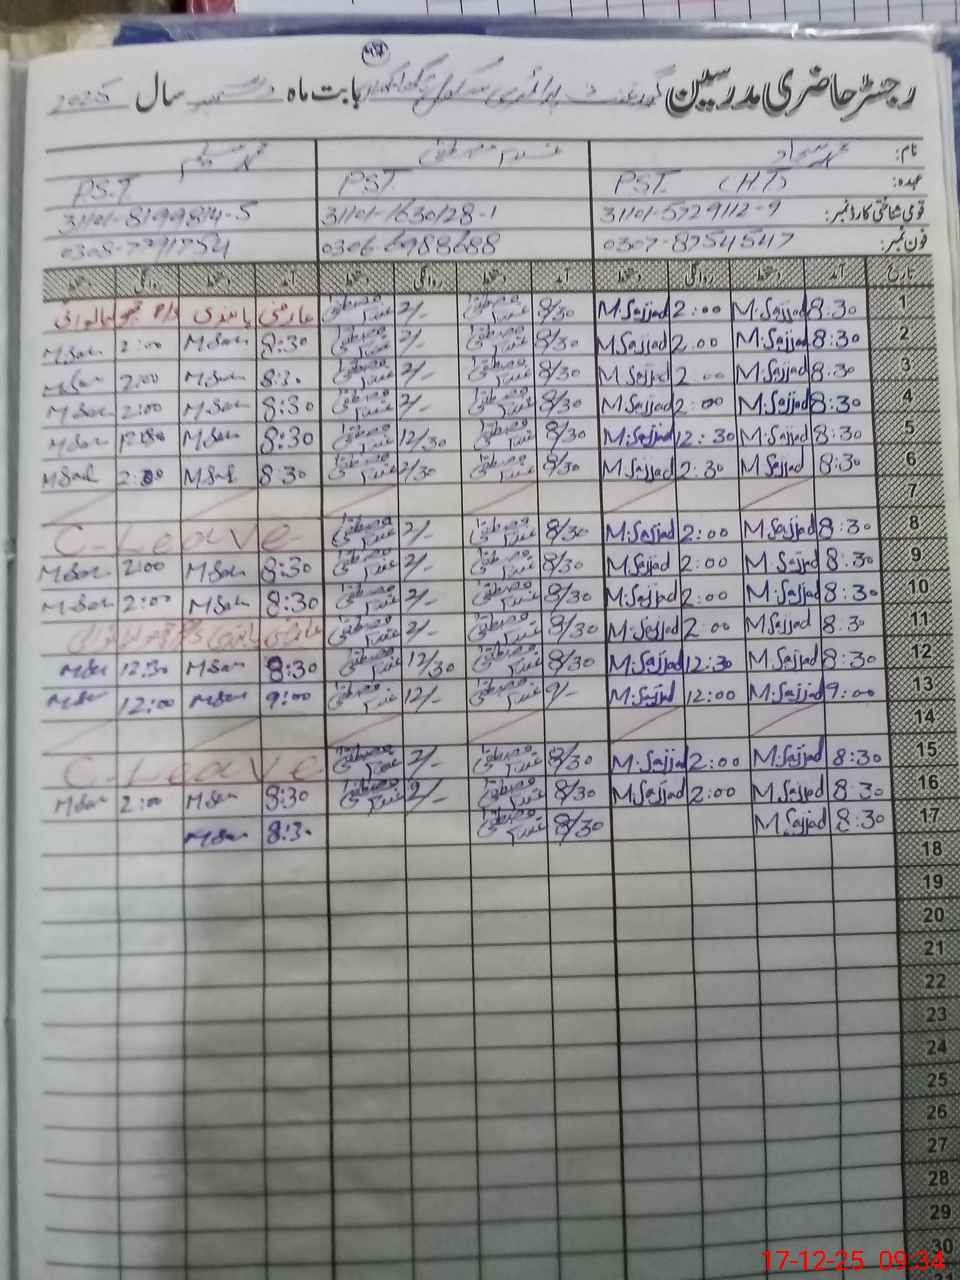 رجسٹر حاضری مدرسین گورنمنٹ پرائمری سکول بابت ماہ دسمبر سال 2025
نام: محمد سجاد غلام مصطفیٰ محمد سلیم
عہدہ: PST (HT) PST P.S.T
قومی شناختی کارڈ نمبر: 31101-5729112-9 31101-1630128-1 31101-8199814-5
فون نمبر: 0307-8754547 0306-6988688 0308-7791754
تاریخ آمد دستخط روانگی دستخط آمد دستخط روانگی دستخط آمد دستخط روانگی دستخط
1 8:30 M.Sajjad 2:00 M.Sajjad 8/30 غلام مصطفیٰ 2/- غلام مصطفیٰ عارضی
2 8:30 M.Sajjad 2:00 M.Sajjad 8/30 غلام مصطفیٰ 2/- غلام مصطفیٰ 8:30 2:00
3 8:30 M.Sajjad 2:00 M.Sajjad 8/30 غلام مصطفیٰ 2/- غلام مصطفیٰ 8:30 2:00
4 8:30 M.Sajjad 2:00 M.Sajjad 8/30 غلام مصطفیٰ 2/- غلام مصطفیٰ 8:30 2:00
5 8:30 M.Sajjad 12:30 M.Sajjad 8/30 غلام مصطفیٰ 12/30 غلام مصطفیٰ 8:30
6 8:30 M.Sajjad 2:30 M.Sajjad 8/30 غلام مصطفیٰ 2/30 غلام مصطفیٰ 8:30 2:00
7
8 8:30 M.Sajjad 2:00 M.Sajjad 8/30 غلام مصطفیٰ 2/- غلام مصطفیٰ C-Leave
9 8:30 M.Sajjad 2:00 M.Sajjad 8/30 غلام مصطفیٰ 2/- غلام مصطفیٰ 8:30 2:00
10 8:30 M.Sajjad 2:00 M.Sajjad 8/30 غلام مصطفیٰ 2/- غلام مصطفیٰ 8:30 2:00
11 8:30 M.Sajjad 2:00 M.Sajjad 8/30 غلام مصطفیٰ 2/- غلام مصطفیٰ عارضی
12 8:30 M.Sajjad 12:30 M.Sajjad 8/30 غلام مصطفیٰ 12/30 غلام مصطفیٰ 8:30 12:30
13 9:00 M.Sajjad 12:00 M.Sajjad 9/- غلام مصطفیٰ 12/- غلام مصطفیٰ 9:00 12:00
14
15 8:30 M.Sajjad 2:00 M.Sajjad 8/30 غلام مصطفیٰ 2/- غلام مصطفیٰ C-Leave
16 8:30 M.Sajjad 2:00 M.Sajjad 8/30 غلام مصطفیٰ 2/- غلام مصطفیٰ 8:30 2:00
17 8:30 M.Sajjad 8/30 غلام مصطفیٰ 8:30
18
19
20
21
22
23
24
25
26
27
28
29
30
17-12-25 09:34